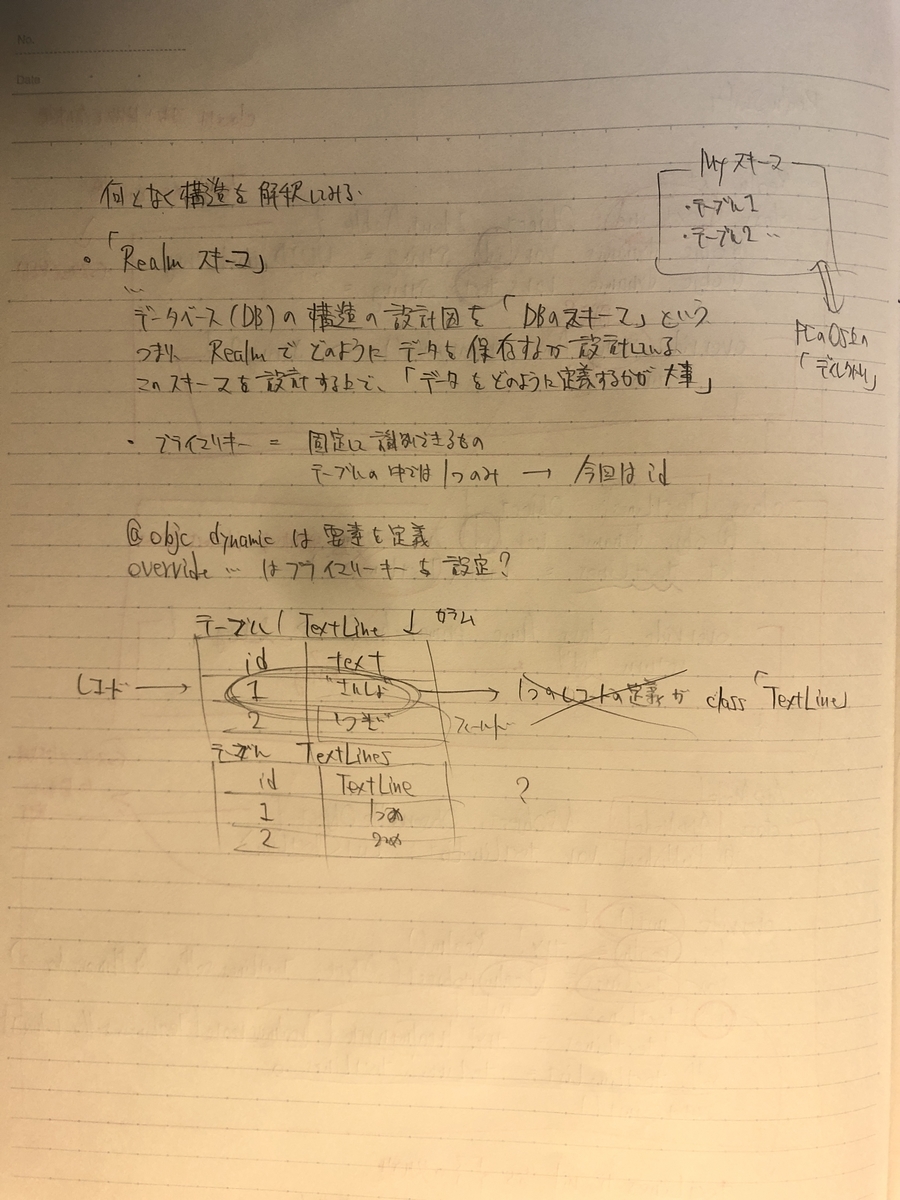 No.
Date
何となく構造を解釈してみる.
・「Realm スキーマ」
…
データベース(DB)の構造の設計図を「DBのスキーマ」という
つまり、Realmでどのようにデータを保存するか設計している
このスキーマを設計する上で、「データをどのように定義するかが大事」
Myスキーマ
・テーブル1
・テーブル2 …
PCのOS上の
「ディレクトリ」
・プライマリキー = 固定して識別できるもの
テーブルの中では1つのみ → 今回は id
@objc dynamic は要素を定義
override … はプライマリーキーを設定?
テーブル TextLine ↓ カラム
id text
レコード → 1 "さいしょ" → 1つのレコードの定義が class「TextLine」
2 "つぎ" フィールド
テーブル TextLines
id TextLine ?
1 1つめ
2 2つめ